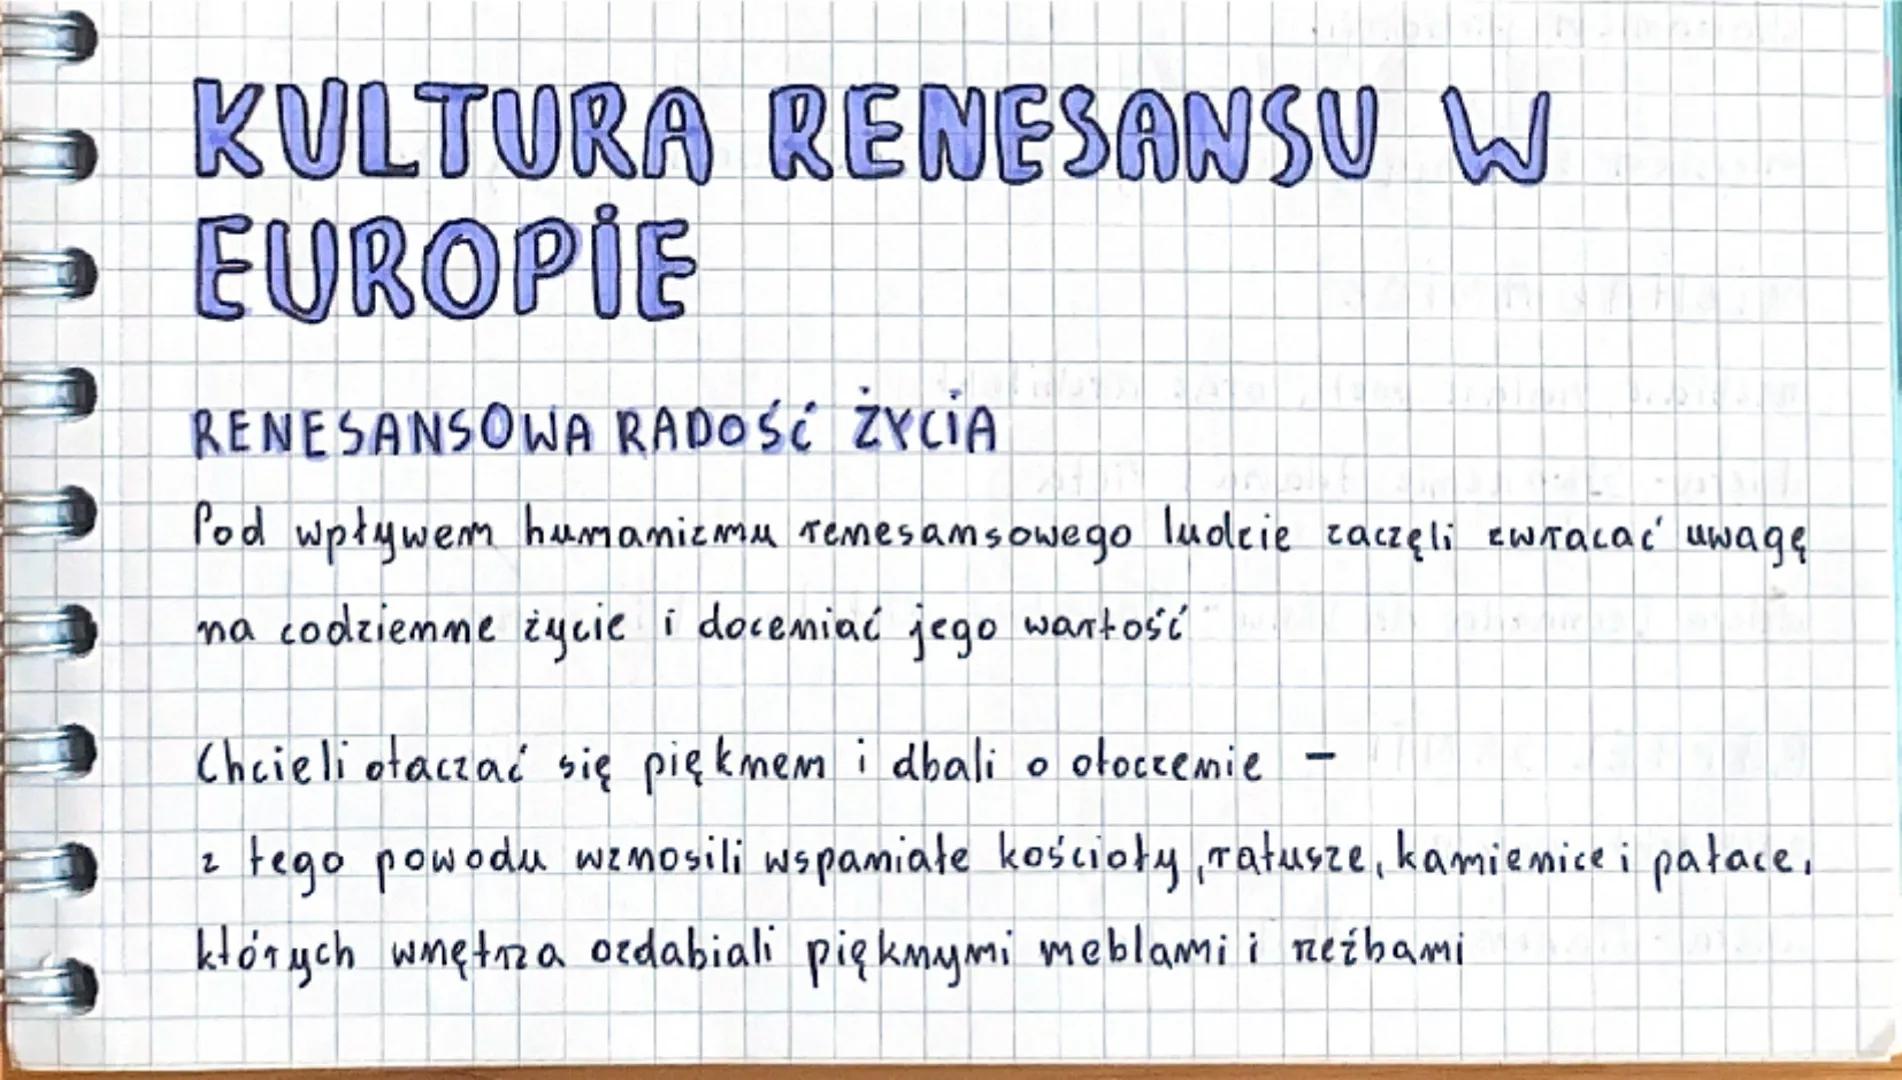 KULTURA RENESANSU W
EUROPIE
RENESANSOWA RADOŚĆ ŻYCIA
Pod wpływem humanizmu renesansowego ludzie zaczęli zwracać uwagę
na codzienne życie i doceniać jego wartość
Chcieli otaczać się pięknem i dbali o otoczenie –
z tego powodu wznosili wspaniałe kościoły, ratusze, kamienice i pałace,
których wnętrza ozdabiali pięknymi meblami i rzeźbami